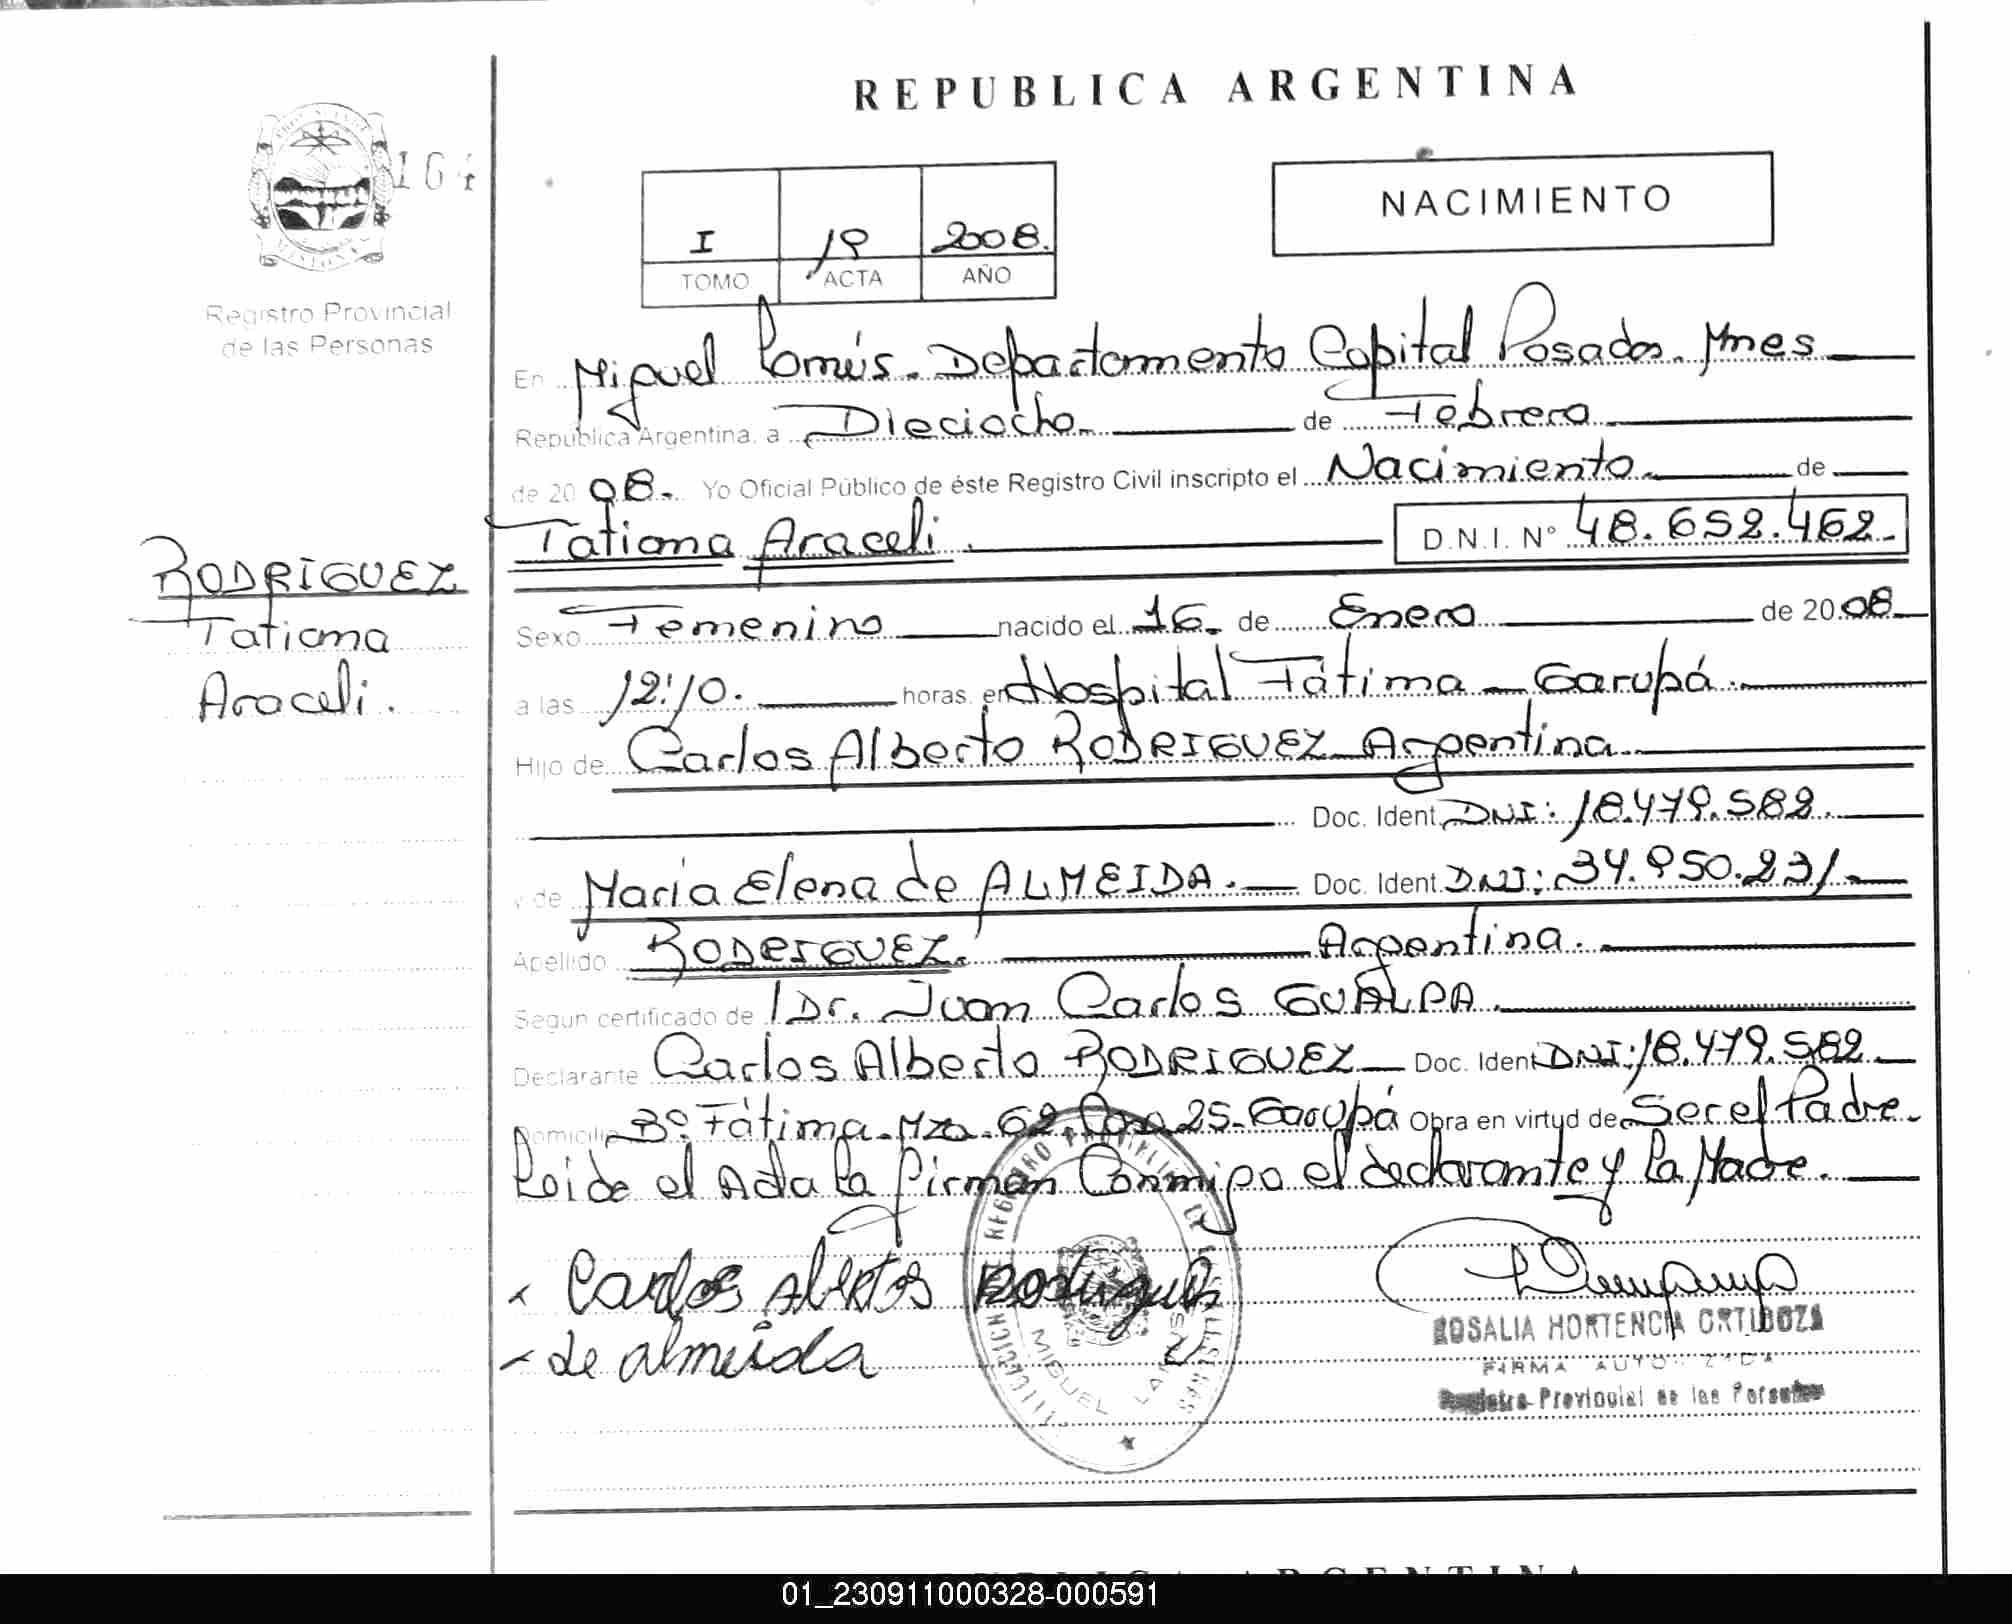 REPUBLICA ARGENTINA
NACIMIENTO
I 19 2008.
TOMO ACTA AÑO
Registro Provincial
de las Personas
En Miguel Lanús. Departamento Capital Posadas. Mnes
República Argentina, a Dieciocho de Febrero
de 20 08. Yo Oficial Público de éste Registro Civil inscripto el Nacimiento de
Tatiana Araceli. D.N.I. N° 48.652.462
RODRIGUEZ
Tatiana
Araceli.
Sexo Femenino nacido el 16. de Enero de 20 08
a las 12:10. horas, en Hospital Fátima - Garupá.
Hijo de Carlos Alberto RODRIGUEZ Argentina
Doc. Ident. DNI: 18.479.582.
y de Maria Elena de ALMEIDA. Doc. Ident. DNI: 34.950.231
Apellido RODRIGUEZ. Argentina.
Segun certificado de Dr. Juan Carlos GUALPA.
Declarante Carlos Alberto RODRIGUEZ Doc. Ident DNI: 18.479.582
Domicilio Bº. Fátima. Mza. 62. 25. Garupá Obra en virtud de Ser el Padre.
Leida el Acta la firman Conmigo el declarante y la Madre.
Carlos Alberto Rodriguez
de almeida
MIGUEL LANUS
ROSALIA HORTENCIA ORTIGOZA
FIRMA AUTORIZADA
Registro Provincial de las Personas
01_230911000328-000591